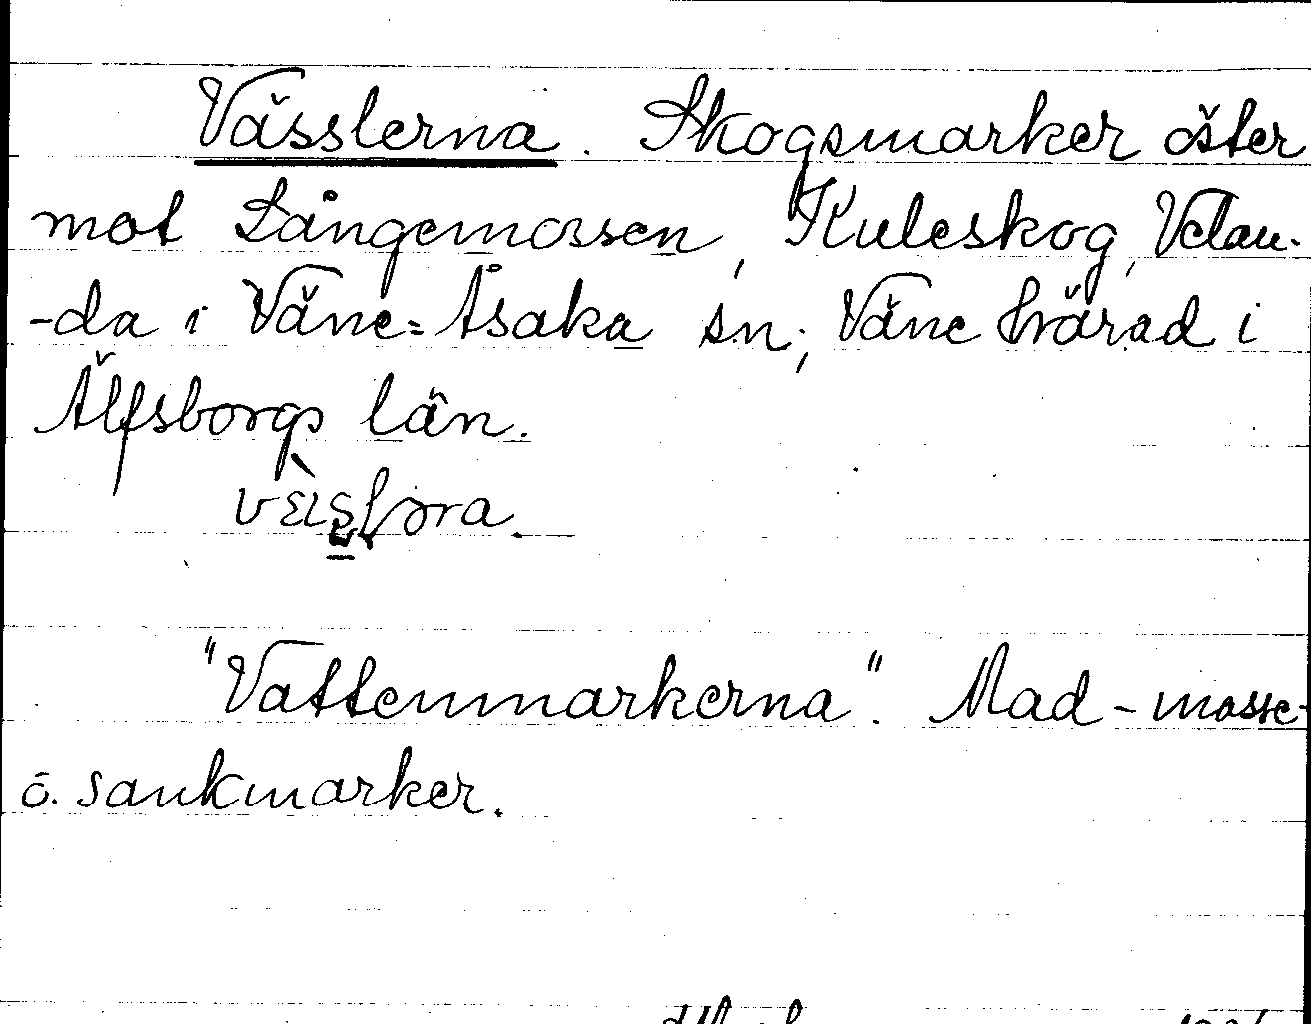 Vässlerna. Skogsmarker öster
mot Långemossen, Kuleskog, Velan-
-da i Väne=Åsaka sn; Väne härad i
Älfsborgs län.
"Vattenmarkerna". Mad - mosse-
o. sankmarker.